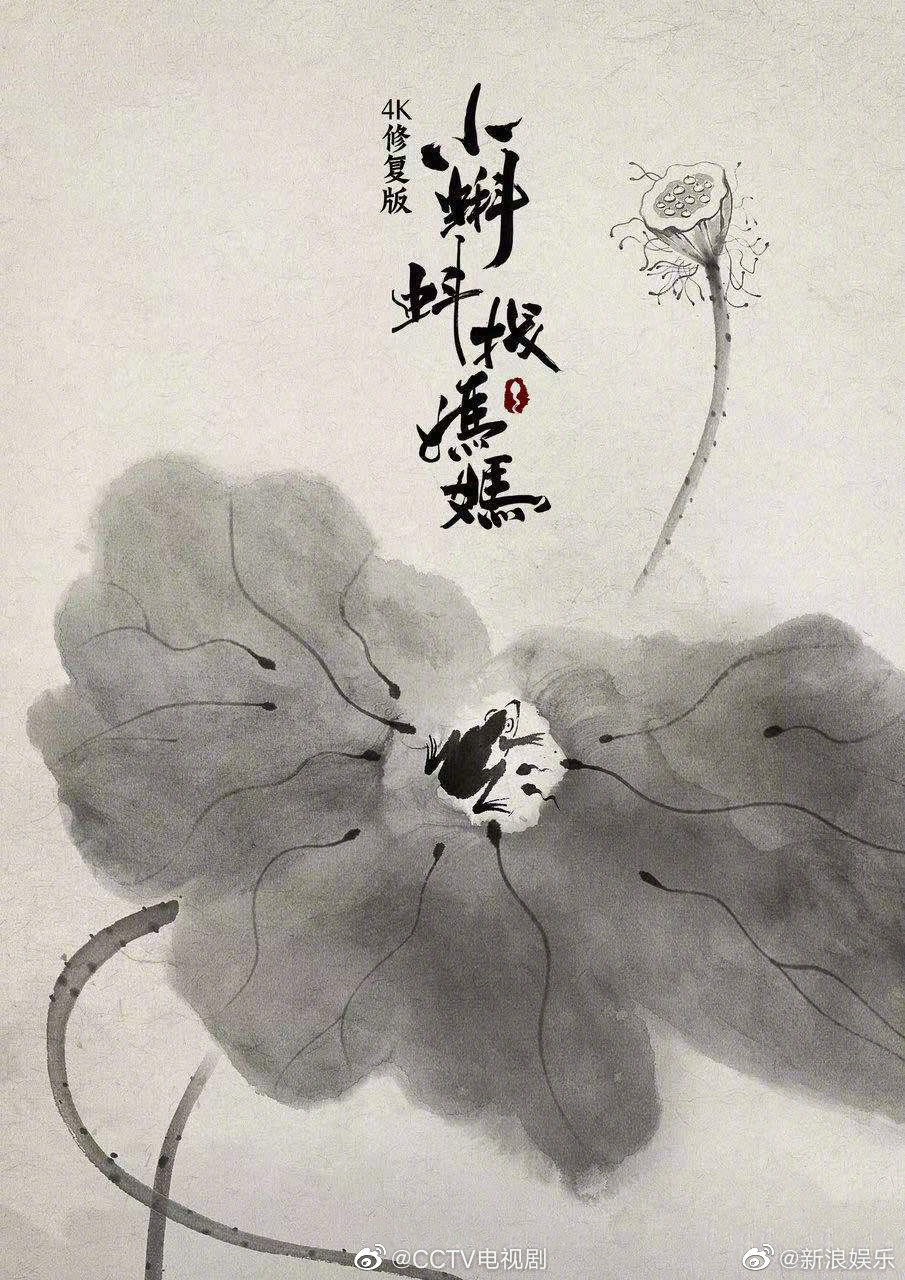 4K修复版
小蝌蚪找媽媽
@CCTV电视剧
@新浪娱乐